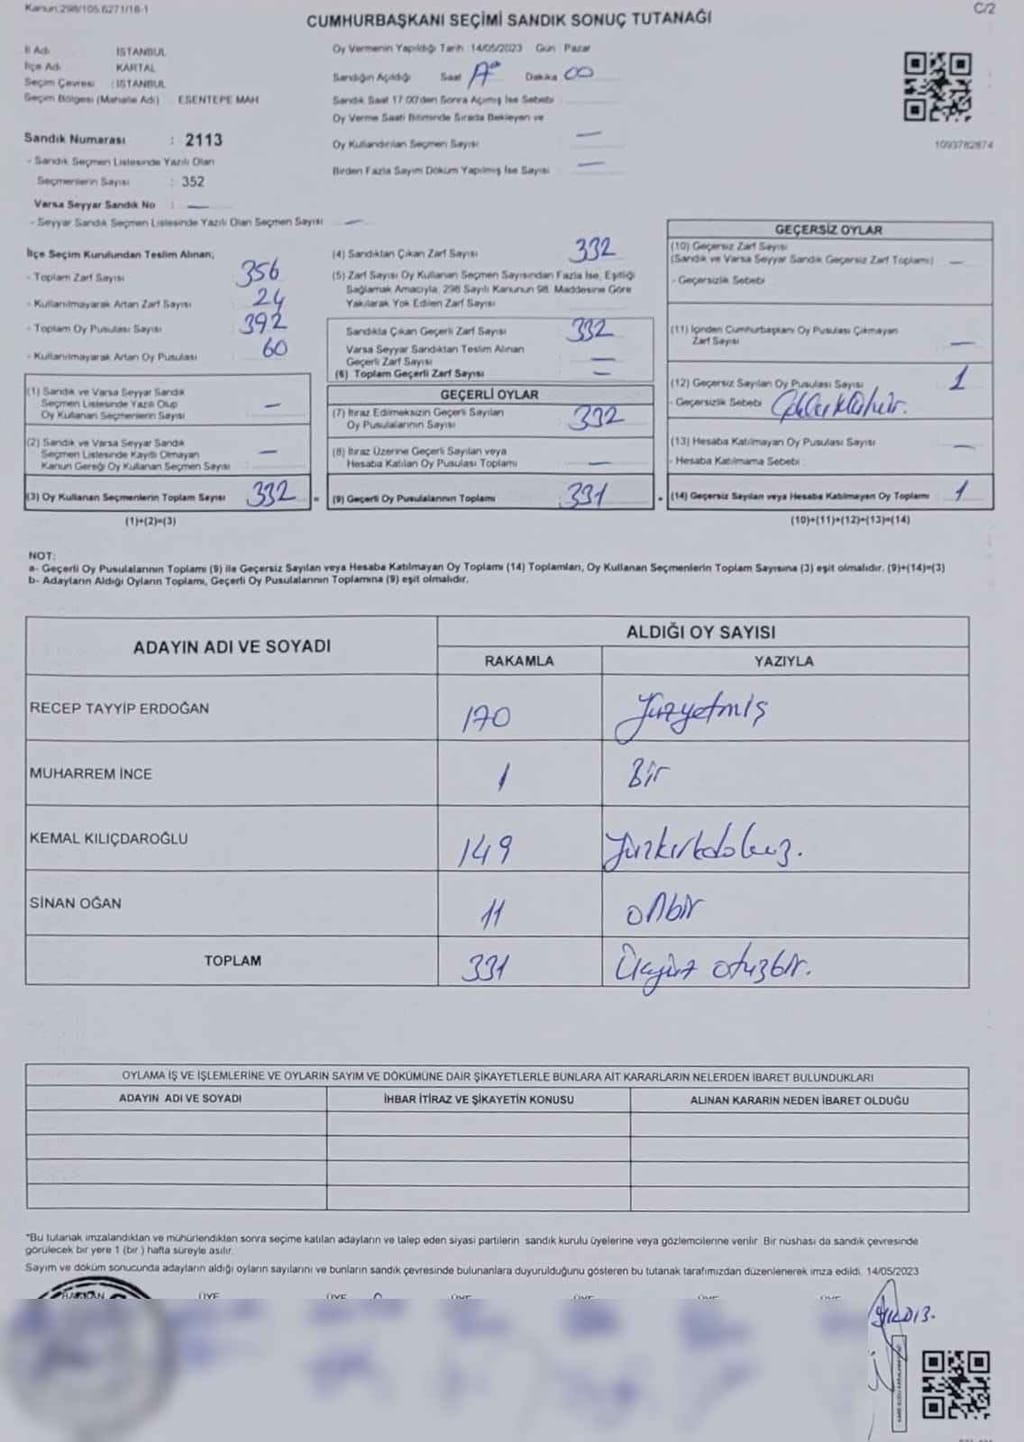 Kanun:298/105.6271/18-1
C/2
CUMHURBAŞKANI SEÇİMİ SANDIK SONUÇ TUTANAĞI
İl Adı : İSTANBUL
İlçe Adı : KARTAL
Seçim Çevresi : İSTANBUL
Seçim Bölgesi (Mahalle Adı) : ESENTEPE MAH
Sandık Numarası : 2113
- Sandık Seçmen Listesinde Yazılı Olan
Seçmenlerin Sayısı : 352
Varsa Seyyar Sandık No : —
- Seyyar Sandık Seçmen Listesinde Yazılı Olan Seçmen Sayısı —
Oy Vermenin Yapıldığı Tarih :14/05/2023 Gün : Pazar
Sandığın Açıldığı Saat Dakika 00
Sandık Saat 17:00'den Sonra Açılmış İse Sebebi
Oy Verme Saati Bitiminde Sırada Bekleyen ve
Oy Kullandırılan Seçmen Sayısı —
Birden Fazla Sayım Döküm Yapılmış İse Sayısı —
1093782874
İlçe Seçim Kurulundan Teslim Alınan;
- Toplam Zarf Sayısı 356
- Kullanılmayarak Artan Zarf Sayısı 24
- Toplam Oy Pusulası Sayısı 392
- Kullanılmayarak Artan Oy Pusulası 60
(1) Sandık ve Varsa Seyyar Sandık
Seçmen Listesinde Yazılı Olup
Oy Kullanan Seçmenlerin Sayısı —
(2) Sandık ve Varsa Seyyar Sandık
Seçmen Listesinde Kayıtlı Olmayan
Kanun Gereği Oy Kullanan Seçmen Sayısı —
(3) Oy Kullanan Seçmenlerin Toplam Sayısı 332 =
(1)+(2)=(3)
(4) Sandıktan Çıkan Zarf Sayısı 332
(5) Zarf Sayısı Oy Kullanan Seçmen Sayısından Fazla İse, Eşitliği
Sağlamak Amacıyla, 298 Sayılı Kanunun 98. Maddesine Göre
Yakılarak Yok Edilen Zarf Sayısı
Sandıkta Çıkan Geçerli Zarf Sayısı 332
Varsa Seyyar Sandıktan Teslim Alınan
Geçerli Zarf Sayısı —
(6) Toplam Geçerli Zarf Sayısı —
GEÇERLİ OYLAR
(7) İtiraz Edilmeksizin Geçerli Sayılan
Oy Pusulalarının Sayısı 332
(8) İtiraz Üzerine Geçerli Sayılan veya
Hesaba Katılan Oy Pusulası Toplamı —
(9) Geçerli Oy Pusulalarının Toplamı 331 +
GEÇERSİZ OYLAR
(10) Geçersiz Zarf Sayısı
(Sandık ve Varsa Seyyar Sandık Geçersiz Zarf Toplamı) —
- Geçersizlik Sebebi
(11) İçinden Cumhurbaşkanı Oy Pusulası Çıkmayan
Zarf Sayısı —
(12) Geçersiz Sayılan Oy Pusulası Sayısı 1
- Geçersizlik Sebebi
(13) Hesaba Katılmayan Oy Pusulası Sayısı —
- Hesaba Katılmama Sebebi :
(14) Geçersiz Sayılan veya Hesaba Katılmayan Oy Toplamı 1
(10)+(11)+(12)+(13)=(14)
NOT:
a- Geçerli Oy Pusulalarının Toplamı (9) ile Geçersiz Sayılan veya Hesaba Katılmayan Oy Toplamı (14) Toplamları, Oy Kullanan Seçmenlerin Toplam Sayısına (3) eşit olmalıdır. (9)+(14)=(3)
b- Adayların Aldığı Oyların Toplamı, Geçerli Oy Pusulalarının Toplamına (9) eşit olmalıdır.
ADAYIN ADI VE SOYADI
ALDIĞI OY SAYISI
RAKAMLA YAZIYLA
RECEP TAYYİP ERDOĞAN 170 Yüzyetmiş
MUHARREM İNCE 1 Bir
KEMAL KILIÇDAROĞLU 149 Yüzkırkdokuz.
SİNAN OĞAN 11 onbir
TOPLAM 331 Üçyüz otuzbir.
OYLAMA İŞ VE İŞLEMLERİNE VE OYLARIN SAYIM VE DÖKÜMÜNE DAİR ŞİKAYETLERLE BUNLARA AİT KARARLARIN NELERDEN İBARET BULUNDUKLARI
ADAYIN ADI VE SOYADI İHBAR İTİRAZ VE ŞİKAYETİN KONUSU ALINAN KARARIN NEDEN İBARET OLDUĞU
"Bu tutanak imzalandıktan ve mühürlendikten sonra seçime katılan adayların ve talep eden siyasi partilerin sandık kurulu üyelerine veya gözlemcilerine verilir. Bir nüshası da sandık çevresinde
görülecek bir yere 1 (bir ) hafta süreyle asılır.
Sayım ve döküm sonucunda adayların aldığı oyların sayılarını ve bunların sandık çevresinde bulunanlara duyurulduğunu gösteren bu tutanak tarafımızdan düzenlenerek imza edildi. 14/05/2023
BAŞKAN ÜYE ÜYE ÜYE ÜYE ÜYE ÜYE